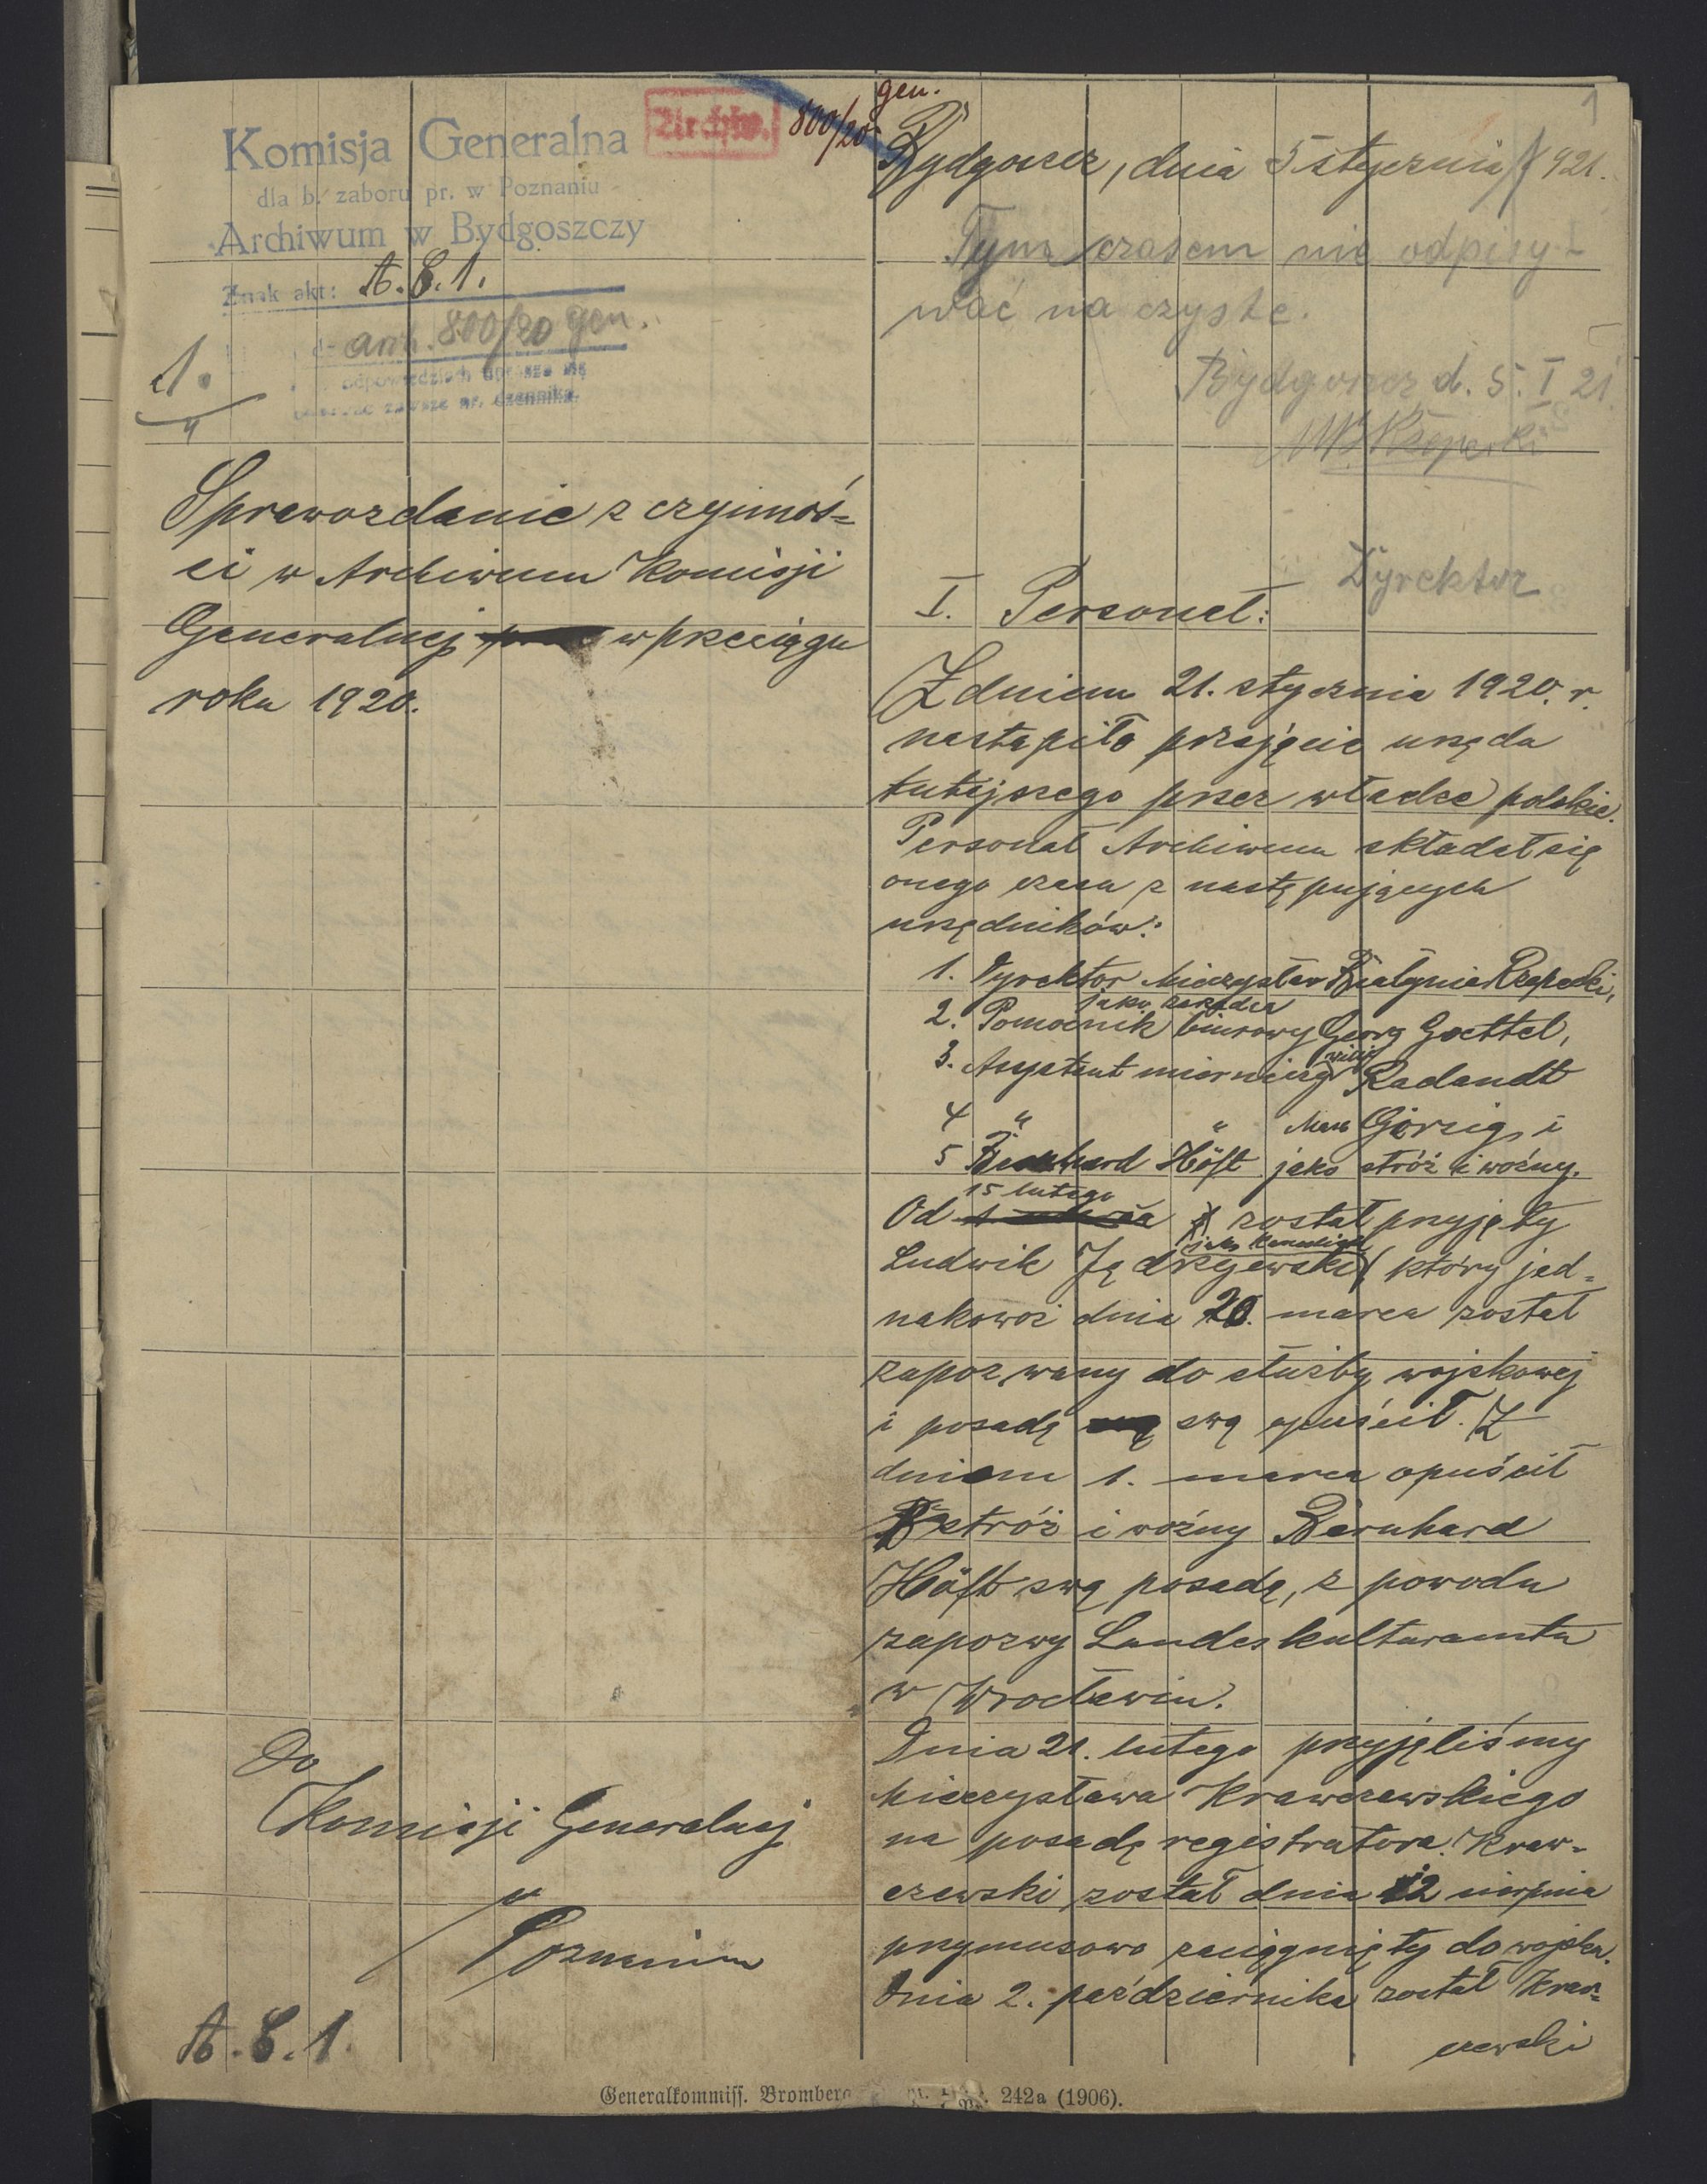 1
Komisja Generalna
dla b. zaboru pr. w Poznaniu
Archiwum w Bydgoszczy
Znak akt: A. E. 1.
arch. 800/20 gen.
odpowiedziach uprasza się
zawsze nr. dziennika.
1.
Archiw.
800/20 gen.
Sprawozdanie z czynnoś-
ci w Archiwum Komisji
Generalnej w przeciągu
roku 1920.
Do
Komisji Generalnej
w
Poznaniu
A. E. 1.
Bydgoszcz, dnia 5 stycznia 1921.
Tym czasem nie odpisy-
wać na czyste.
Bydgoszcz d. 5. I 21.
Rzepecki
Dyrektor
I. Personel:
Z dniem 21. stycznia 1920. r.
nastąpiło przejęcie urzędu
tutejszego przez władze polskie.
Personal Archiwum składał się
onego czasu z następujących
urzędników:
1. Dyrektor Mieczysław Białynia Rzepecki,
jako zarządca
2. Pomocnik biurowy Georg Goettel,
3. Asystent mierniczy Willy Radandt
4 " " Max Görzig, i
5 Bernhard Höft jako stróż i woźny.
15 lutego
Od został przyjęty
jako kancelista
Ludwik Jędrzejewski, który jed-
nakowoż dnia 20. marca został
zapozwany do służby wojskowej
i posadę swą opuścił. Z
dniem 1. marca opuścił
stróż i woźny Bernhard
Höft swą posadę, z powodu
zapozwy Landeskulturamtu
w Wrocławiu.
Dnia 21. lutego przyjęliśmy
Mieczysława Krawczewskiego
na posadę registratora. Kraw-
czewski został dnia 12 sierpnia
przymusowo zaciągnięty do wojska.
Dnia 2. października został Kraw-
czewski
Generalkommiss. Bromberg 242a (1906).